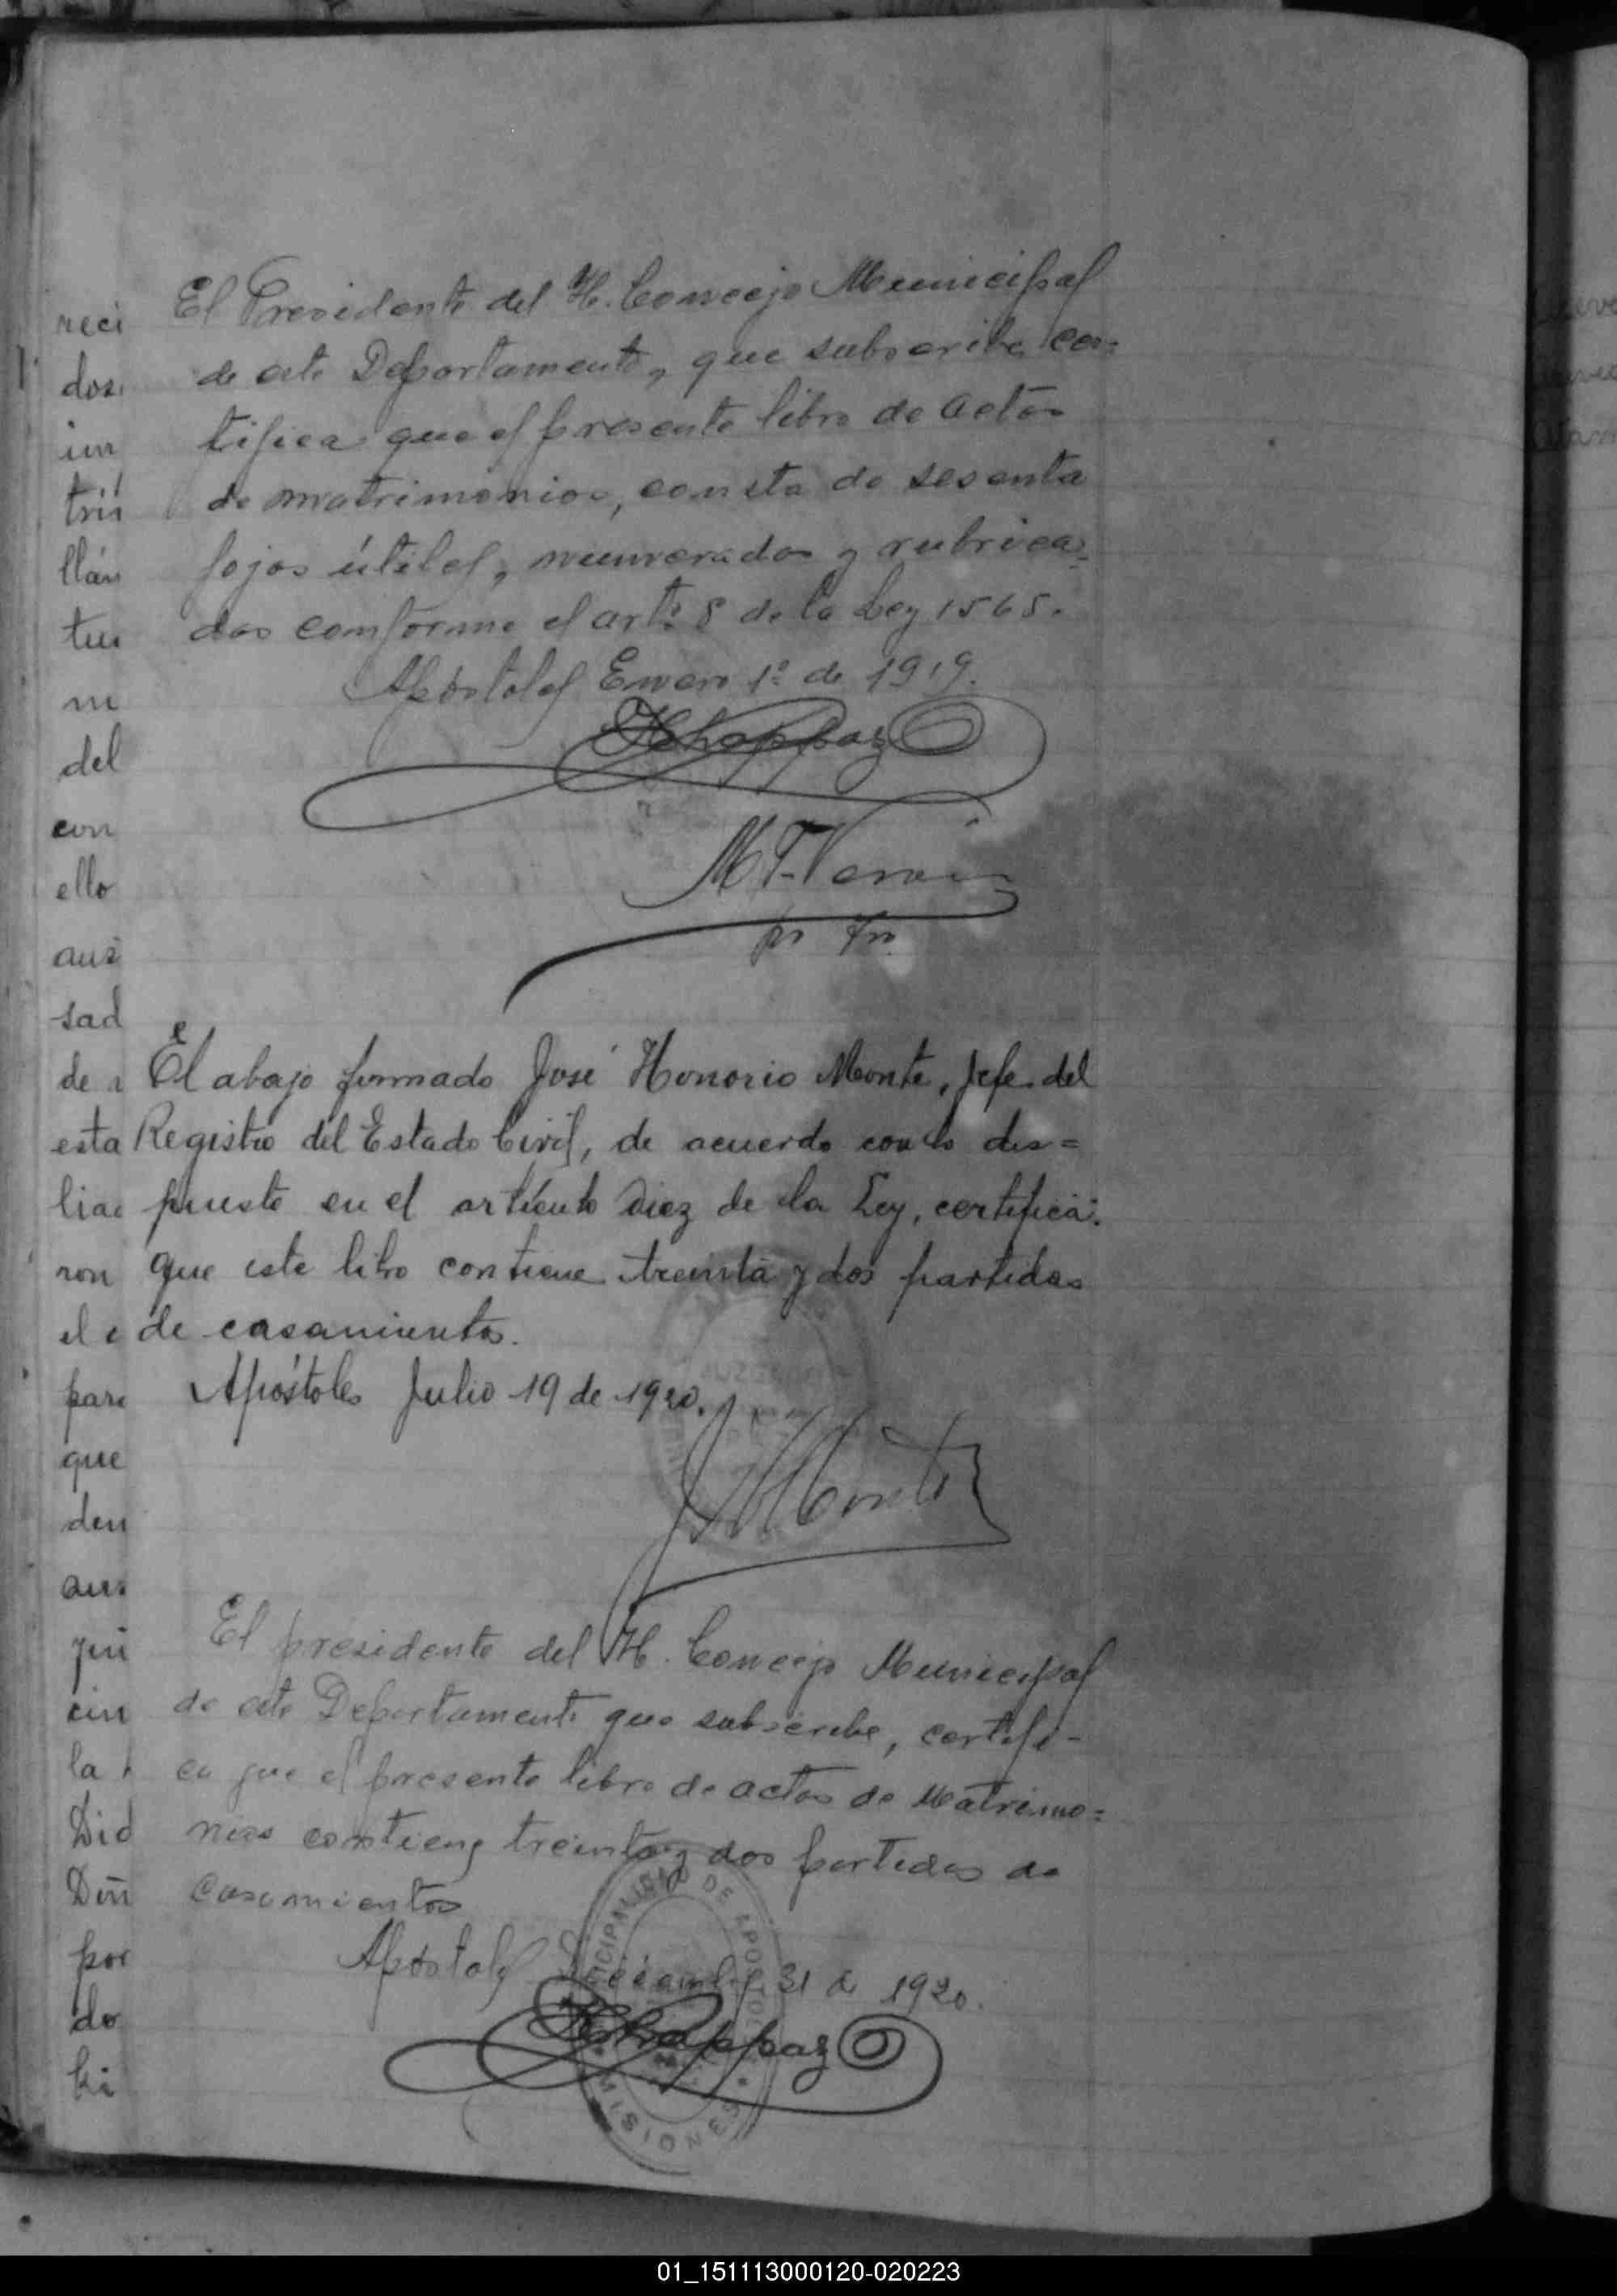 El Presidente del H. Concejo Municipal
de este Departamento, que subscribe cer=
tifica que el presente libro de actas
de matrimonios, consta de sesenta
fojas útiles, numeradas y rubrica=
das conforme el art.º 8 de la Ley 1565.
Apóstoles Enero 1º de 1919.
Chappaz
El abajo firmado José Honorio Monte, Jefe del
Registro del Estado Civil, de acuerdo con lo dis=
puesto en el artículo diez de la Ley, certifica:
que este libro contiene treinta y dos partidas
de casamientos.
Apóstoles Julio 19 de 1920.
JHMonte
El presidente del H. Concejo Municipal
de este Departamento que subscribe, certifi-
ca que el presente libro de actas de Matrimo=
nios contiene treinta y dos partidas de
casamientos
Apóstoles Diciembre 31 de 1920.
Chappaz
MUNICIPALIDAD DE APOSTOLES
MISIONES
reci
dos
un
trii
llán
tus
m
del
con
ello
aus
sad
de
esta
liac
ron
el
para
que
den
aus
yui
cin
la
Did
Din
por
do
hi
01_151113000120-020223